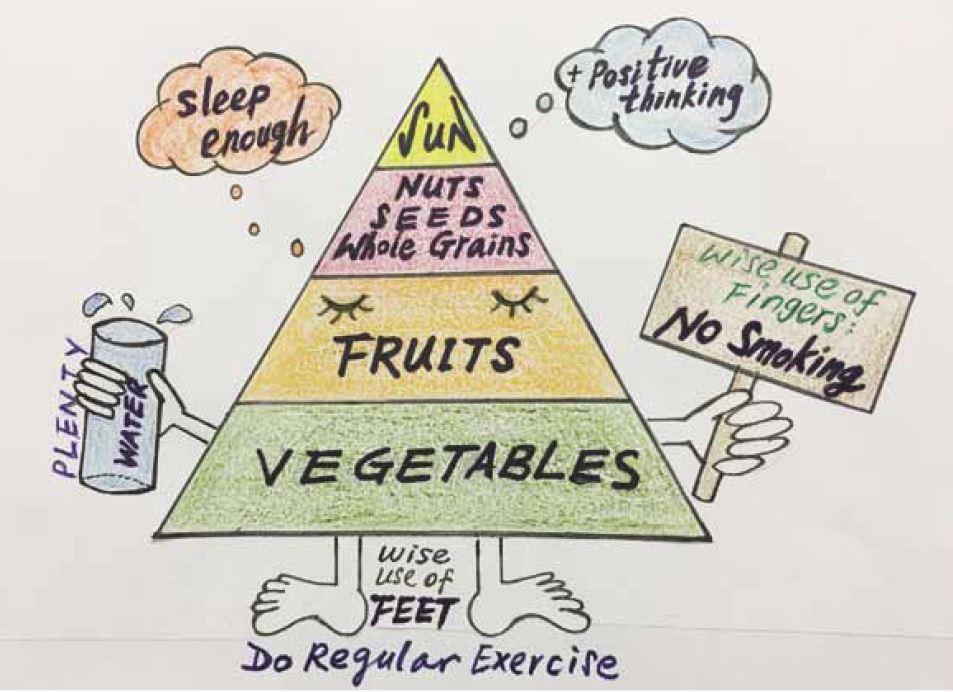 sleep
enough
+ Positive
thinking
SUN
NUTS
SEEDS
Whole Grains
wise use of
Fingers:
No Smoking
FRUITS
PLENTY
WATER
VEGETABLES
wise
use of
FEET
Do Regular Exercise